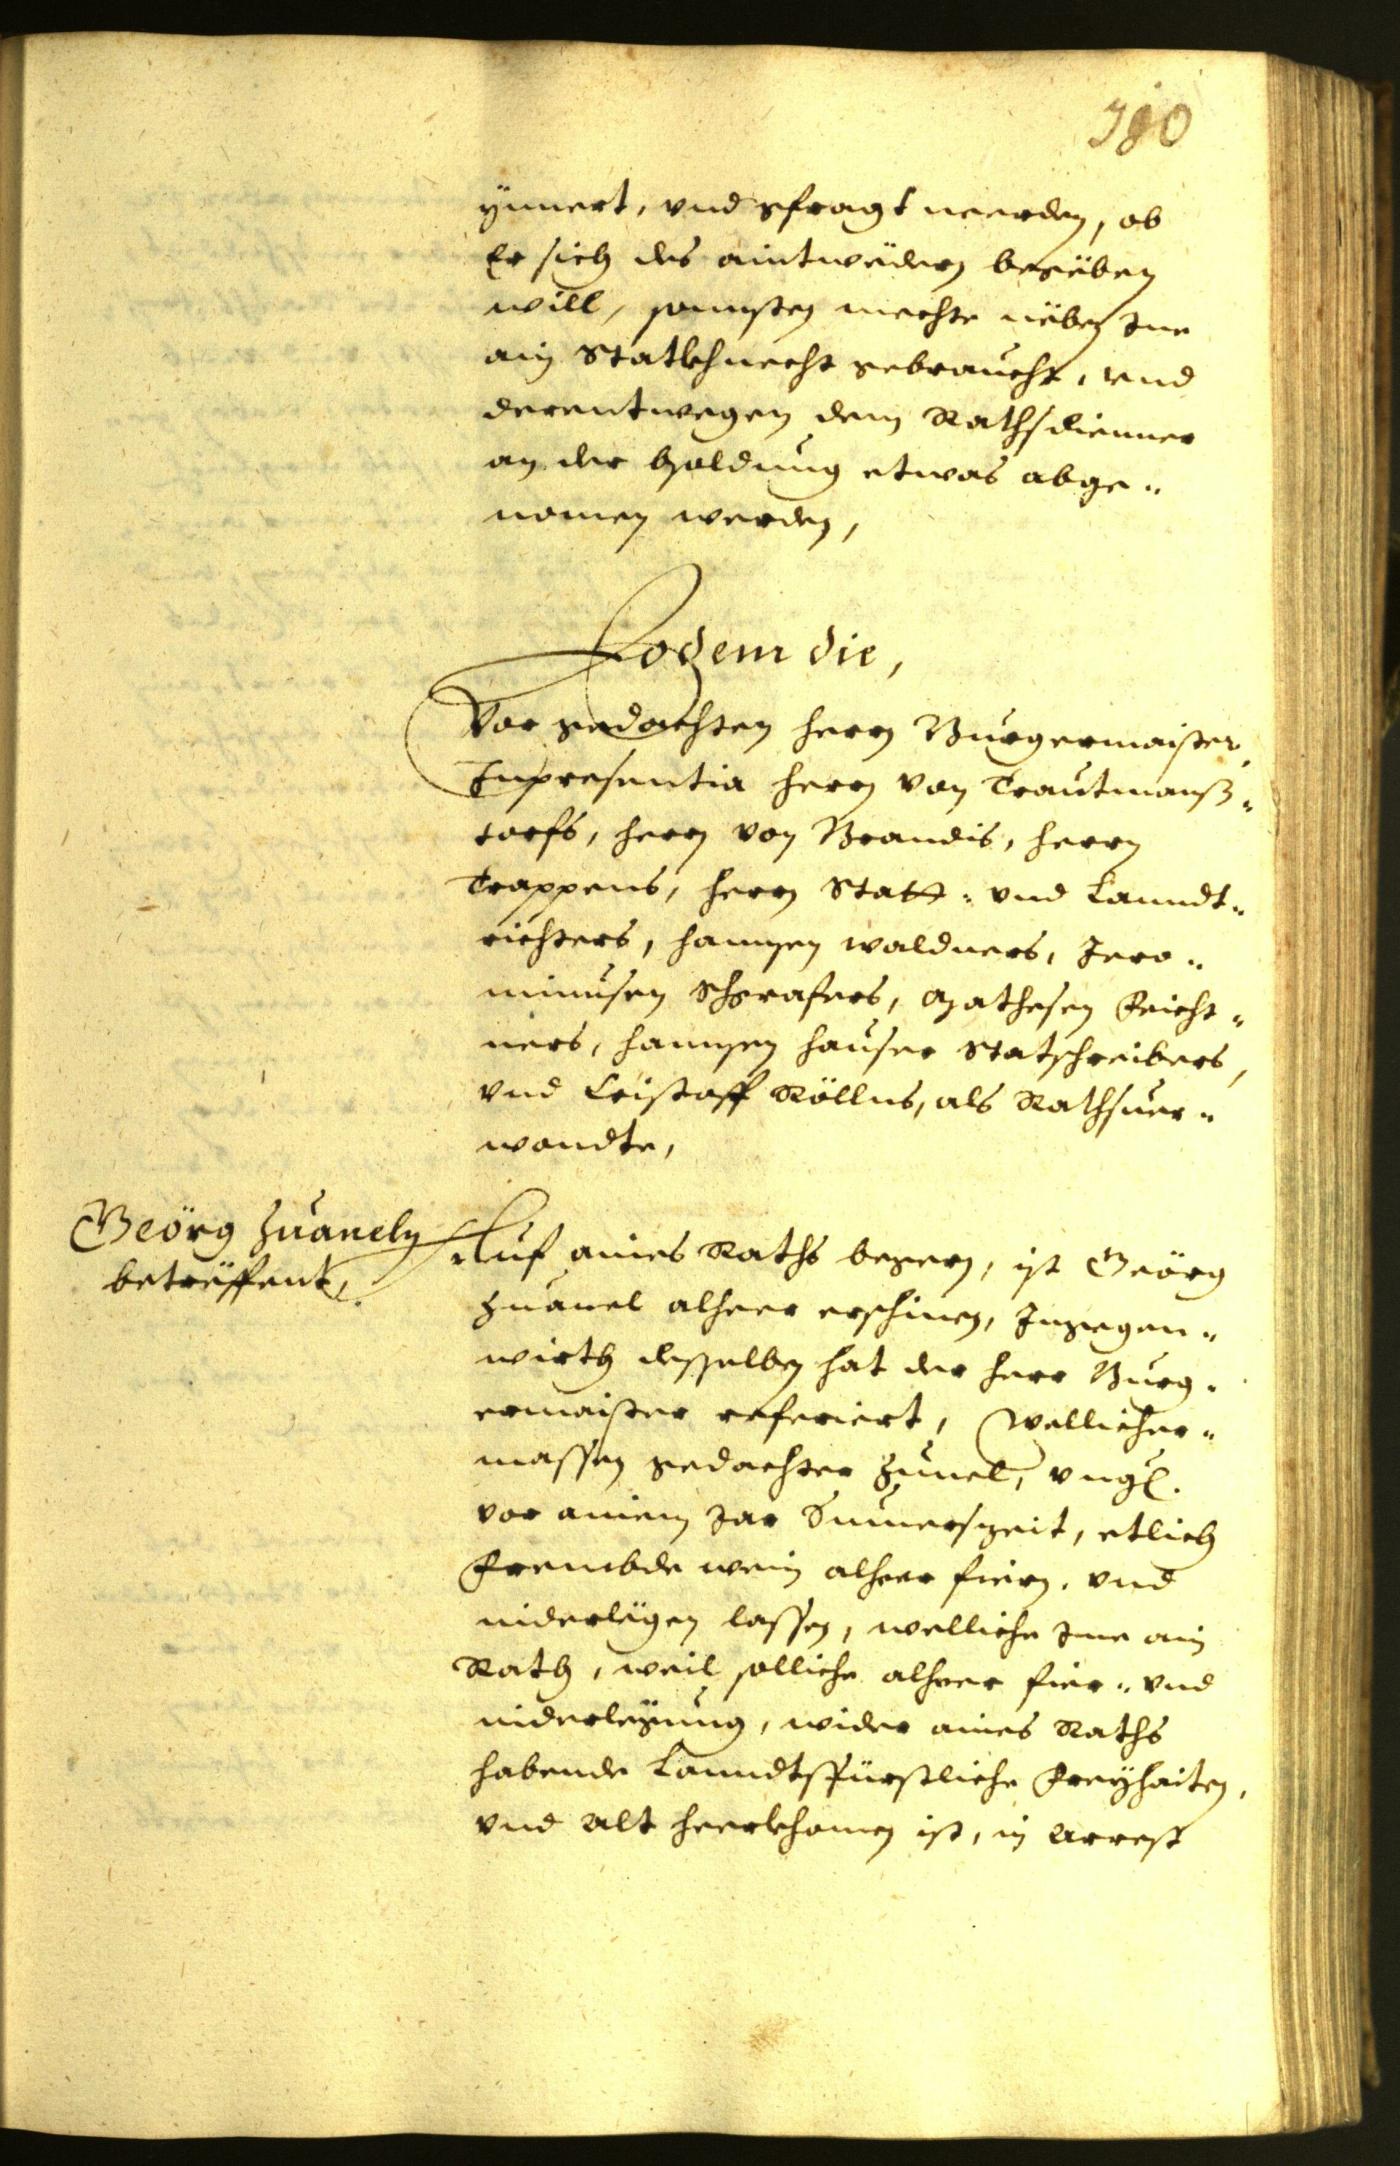 380
ynnert, vnd gfragt werden, ob
Er sich des aintwëdern begëben
will, sonnsten mechte nëben Ime
ain Statkhnecht gebraucht, vnd
derentwegen dem Rathsdienner
an der bsoldung etwas abge„
nomen werden,
Eodem die,
Vor gedachten herrn Burgermaister,
Inpresentia herrn von Trautmanß„
torfs, herrn von Brandis, herrn
Trappens, herrn Statt„ vnd Lanndt„
richters, hannsen waldners, Jero„
nimusen Schgrafers, Mathesen Feicht„
ners, hannsen hauser Statschreibers,
vnd Cristoff Röllns, als Rathsuer„
wondte,
Geörg Zuaneln
betrëffent,
Auf aines Raths begern, ist Geörg
Zuanel alheer erschinen, Ingegen„
wirth desselben hat der herr Burg„
ermaister referiert, Wellicher„
massen gedachter Zunel, vngl.
vor ainem Jar Sumerszeit, etlich
Frembde wein alheer fiern, vnd
niderlëgen lassen, welliche Ime ain
Rath, weil solliche alheer fier„ vnd
niderlegung, wider aines Raths
habende Lanndtsfürstliche Freyhaiten,
vnd alt heerkhomen ist, in Arrest